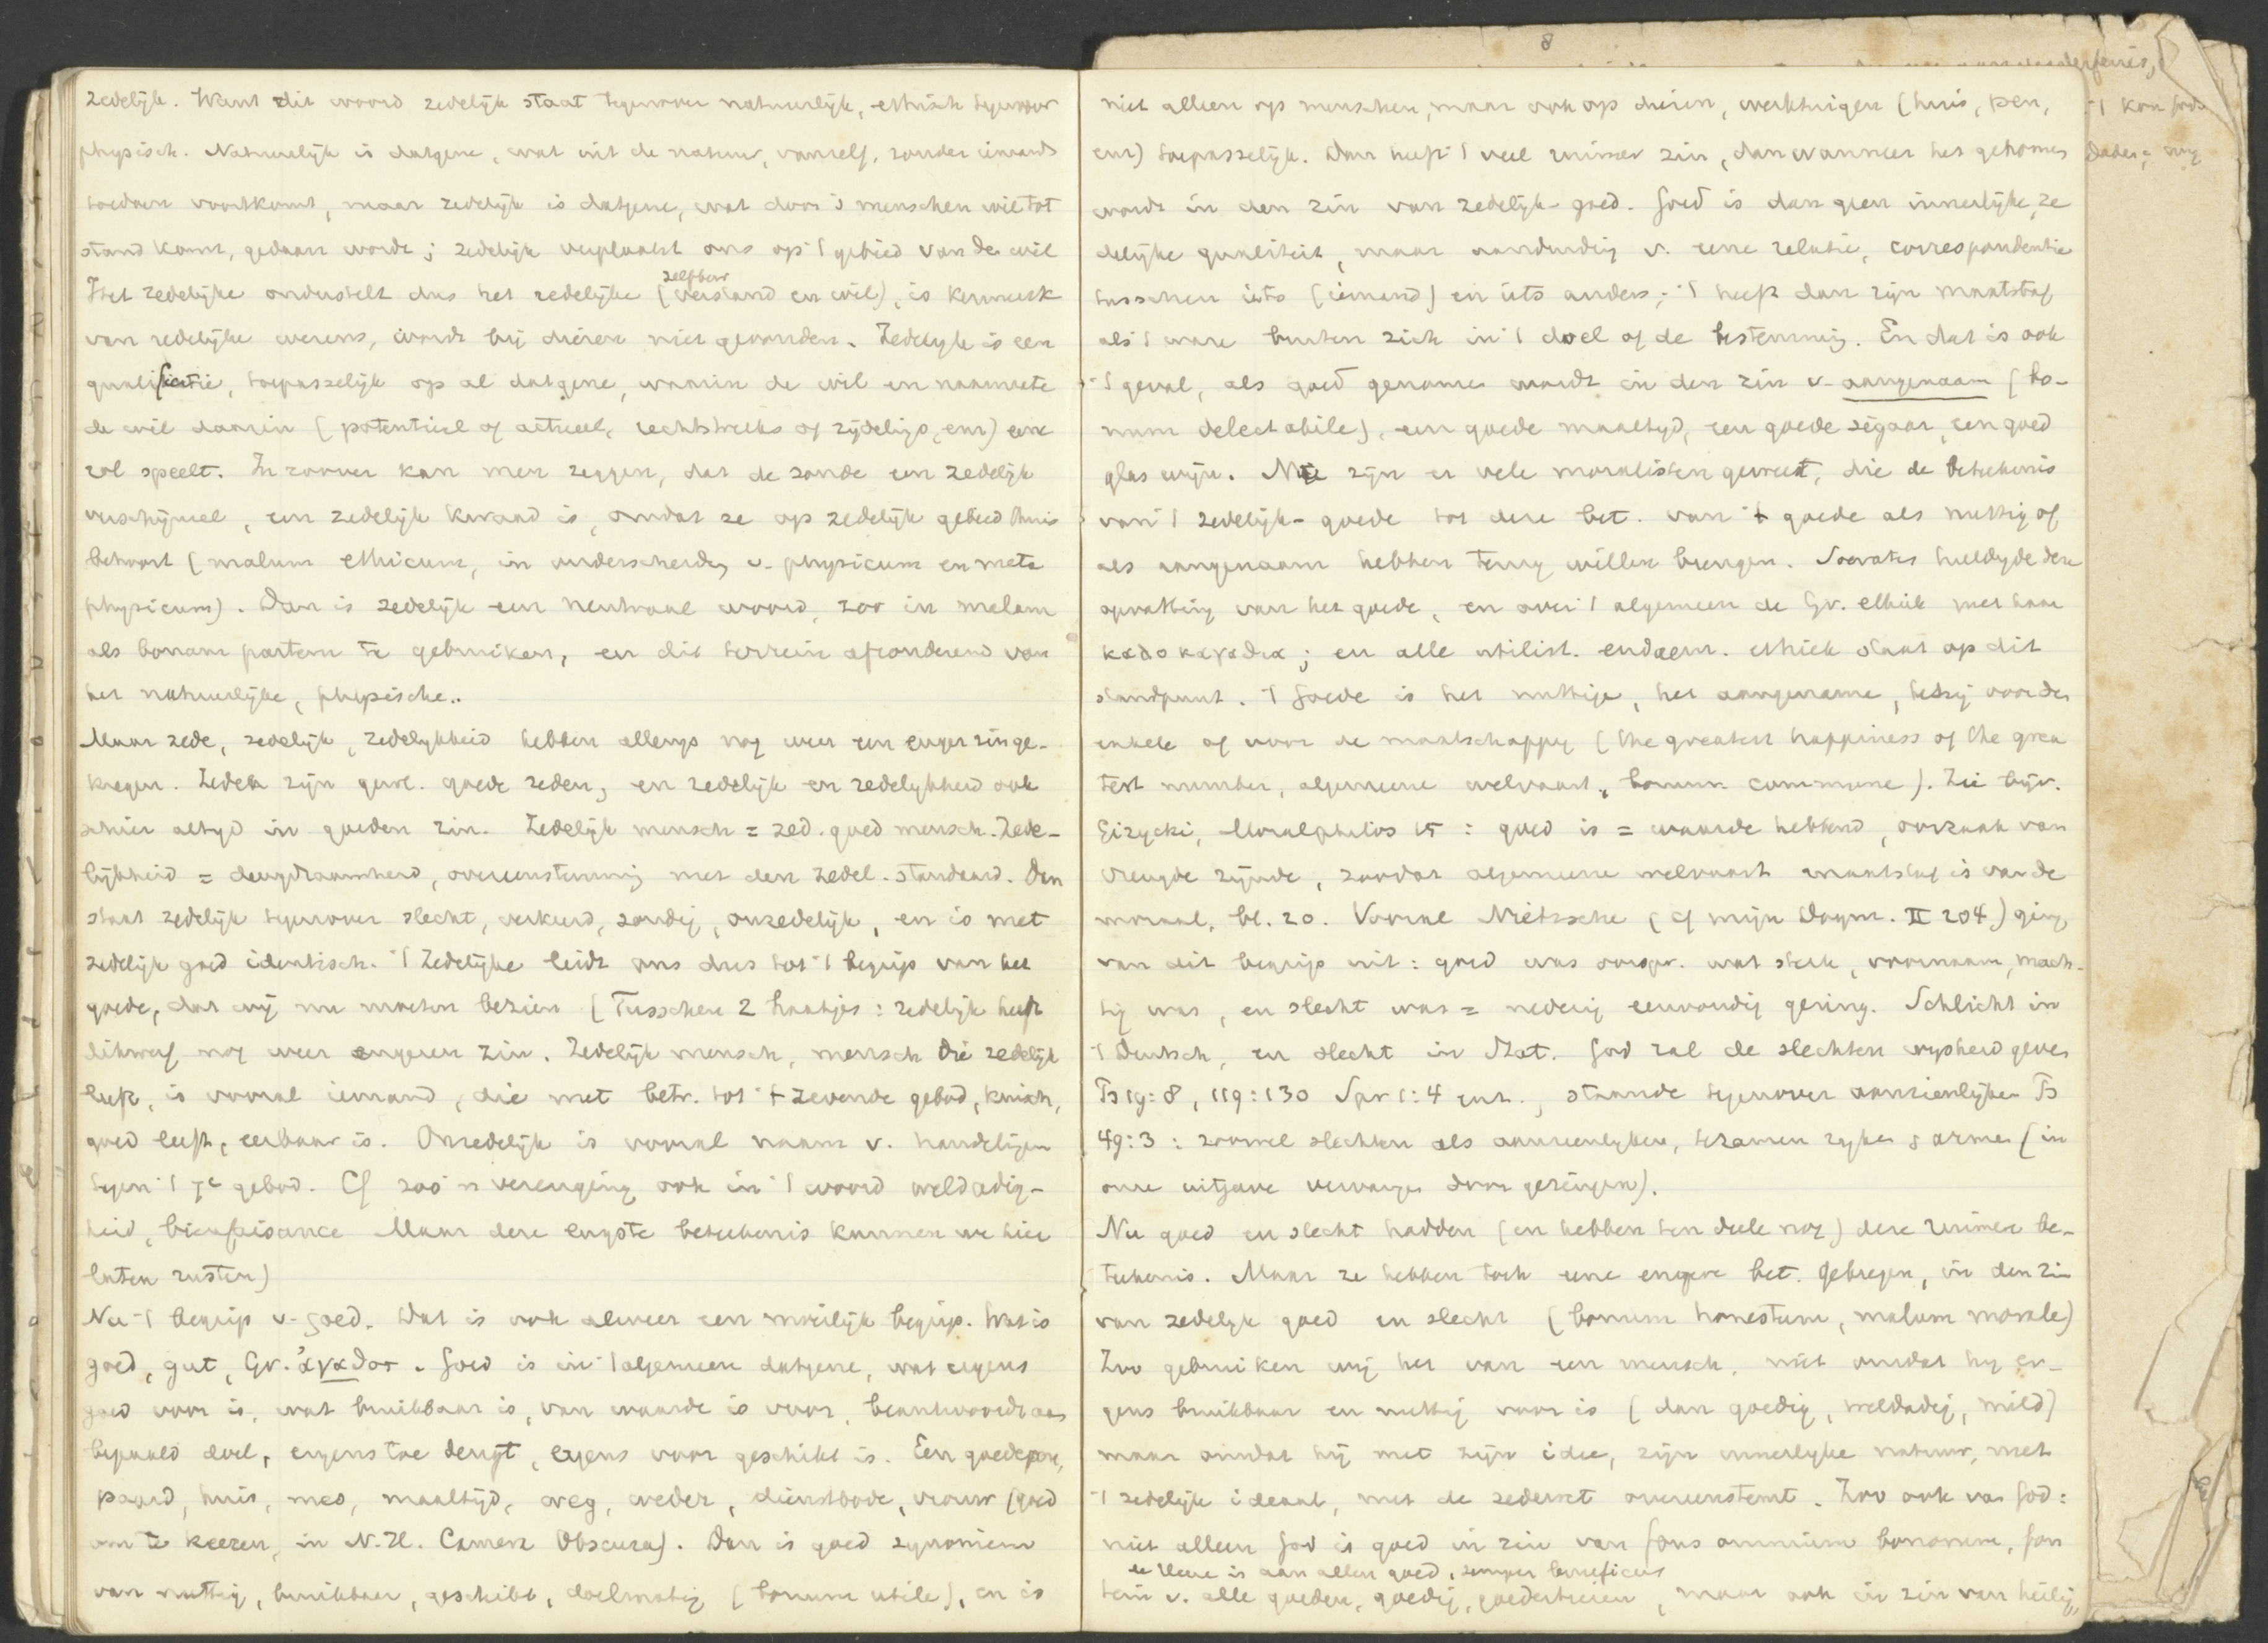 zedelijk. Want dit woord zedelijk staat tegenover natuurlijk, ethisch tegenover
physisch. Natuurlijk is datgene, wat uit de natuur, vanzelf, zonder iemands
toedoen voortkomt, maar zedelijk is datgene, wat door 's menschen wil tot
stand komt, gedaan wordt; zedelijk verplaatst ons op 't gebied van den wil
Het zedelijke onderstelt dus het redelijke (verstand en wil), is kenmerk
zelfbew
van redelijke wezens, wordt bij dieren niet gevonden. Zedelijk is een
qualificatie, toepasselijk op al datgene, waarin de wil en naarmate
de wil daarin (potentieel of actueel, rechtstreeks of zijdelings, enz) eene
rol speelt. In zoover kan men zeggen, dat de zonde een zedelijk
verschijnsel, een zedelijk kwaad is, omdat ze op zedelijk gebied thuis
behoort (malum ethicum, in onderscheidg v. physicum en meta
physicum). Dan is zedelijk een neutraal woord, zoo in malam
als bonam partem te gebruiken, en dit terrein afzonderend van
het natuurlijke, physische..
Maar zede, zedelijk, zedelijkheid hebben allengs nog weer een enger zin ge-
kregen. Zeden zijn gew. goede zeden, en zedelijk en zedelijkheid ook
schier altyd in goeden zin. Zedelijk mensch = zed. goed mensch. Zede-
lijkheid = deugdzaamheid, overeenstemming met den zedel. standaard. Dan
staat zedelijk tegenover slecht, verkeerd, zondig, onzedelijk, en is met
zedelijk goed identisch. 't Zedelijke leidt ons dus tot 't begrip van het
goede, dat wij nu moeten bezien (Tusschen 2 haakjes: zedelijk heeft
dikwerf nog weer engeren zin. Zedelijk mensch, mensch die zedelijk
leeft, is vooral iemand, die met betr. tot 't zevende gebod, kuisch,
goed leeft, eerbaar is. Onzedelijk is vooral naam v. handelingen
tegen 't 7e gebod. Cf zoo'n verenging ook in 't woord weldadig-
heid, bienfaisance Maar deze engste beteekenis kunnen we hier
laten rusten)
Nu 't begrip v. goed. Dat is ook alweer een moeilijk begrip. Wat is
goed, gut, Gr. ἀγαθον. Goed is in 't algemeen datgene, wat ergens
goed voor is, wat bruikbaar is, van waarde is voor, beantwoordt aan
bepaald doel, ergens toe deugt, ergens voor geschikt is. Een goede pen,
paard, huis, mes, maaltijd, weg, weder, dienstbode, vrouw (goed
om te keeren, in N. H. Camera Obscura). Dan is goed synoniem
van nuttig, bruikbaar, geschikt, doelmatig (bonum utile), en is
8
niet alleen op menschen, maar ook op dieren, werktuigen (huis, pen,
enz) toepasselijk. Dan heeft 't veel ruimer zin, dan wanneer het genomen
wordt in den zin van zedelijk-goed. Goed is dan geen innerlijke, ze
delijke qualiteit, maar aanduiding v. eene relatie, correspondentie
tusschen iets (iemand) en iets anders; 't heeft dan zijn maatstaf
als 't ware buiten zich in 't doel of de bestemming. En dat is ook
't geval, als goed genomen wordt in den zin v. aangenaam (bo-
num delectabile), een goede maaltyd, een goede sigaar, een goed
glas wijn. Nu zijn er vele moralisten geweest, die de beteekenis
van 't zedelijk-goede tot deze bet. van 't goede als nuttig of
als aangenaam hebben terug willen brengen. Socrates huldigde deze
opvatting van het goede, en over 't algemeen de Gr. ethiek met haar
καλοκαγαθια; en alle utilist. eudaem. ethiek staat op dit
standpunt. 't Goede is het nuttige, het aangename, hetzij voor den
enkele of voor de maatschappy (the greatest happiness of the grea
test number, algemeene welvaart, bonum commune). Zie bijv.
Gizycki, Moralphilos 15: goed is = waarde hebbend, oorzaak van
vreugde zijnde, zoodat algemeene welvaart maatstaf is van de
moraal, bl. 20. Vooral Nietzsche (cf mijn Dogm. II 204) ging
van dit begrip uit: goed was oorspr. wat sterk, voornaam, mach-
tig was, en slecht was = nederig eenvoudig gering. Schlicht in
't Duitsch, en slecht in Stat. God zal de slechten wysheid geven
Ps 19:8, 119:130 Spr 1:4 enz., staande tegenover aanzienlijken Ps
49:3: zoowel slechten als aanzienlyken, tezamen ryken & armen (in
onze uitgave vervangen door geringen).
Nu goed en slecht hadden (en hebben ten deele nog) deze ruimere be-
teekenis. Maar ze hebben toch eene engere bet. gekregen, in den zin
van zedelijk goed en slecht (bonum honestum, malum morale)
Zoo gebruiken wij het van een mensch, niet omdat hy er-
gens bruikbaar en nuttig voor is (dan goedig, weldadig, mild)
maar omdat hij met zijn idee, zijn innerlyke natuur, met
't zedelijk ideaal, met de zedewet overeenstemt. Zoo ook van God:
niet alleen God is goed in zin van fons omnium bonorum, fon
de Heere is aan allen goed, semper beneficus
tein v. alle goeden, goedig, goedertieren, maar ook in zin van heilig,